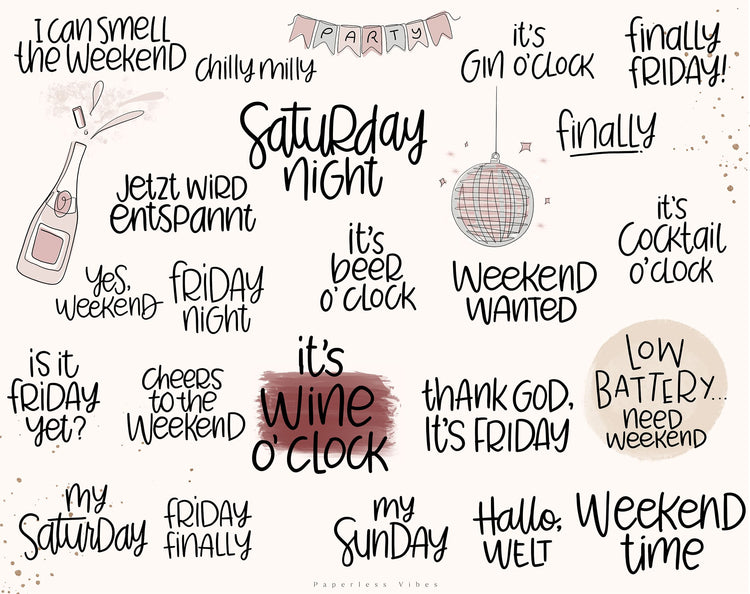 I can smell
the weekend
chilly milly
PARTY
it's
Gin o'clock
finally
FRIDAY!
Saturday
night
finally
Jetzt wird
entspannt
it's
beer
o'clock
it's
Cocktail
o'clock
yes,
weekend
FRIDAY
night
Weekend
wanted
is it
FRIDAY
yet?
cheers
to the
Weekend
it's
Wine
o'clock
thank God,
It's FRIDAY
Low
Battery...
need
weekend
my
Saturday
FRIDAY
finally
my
Sunday
Hallo,
Welt
Weekend
time
Paperless Vibes